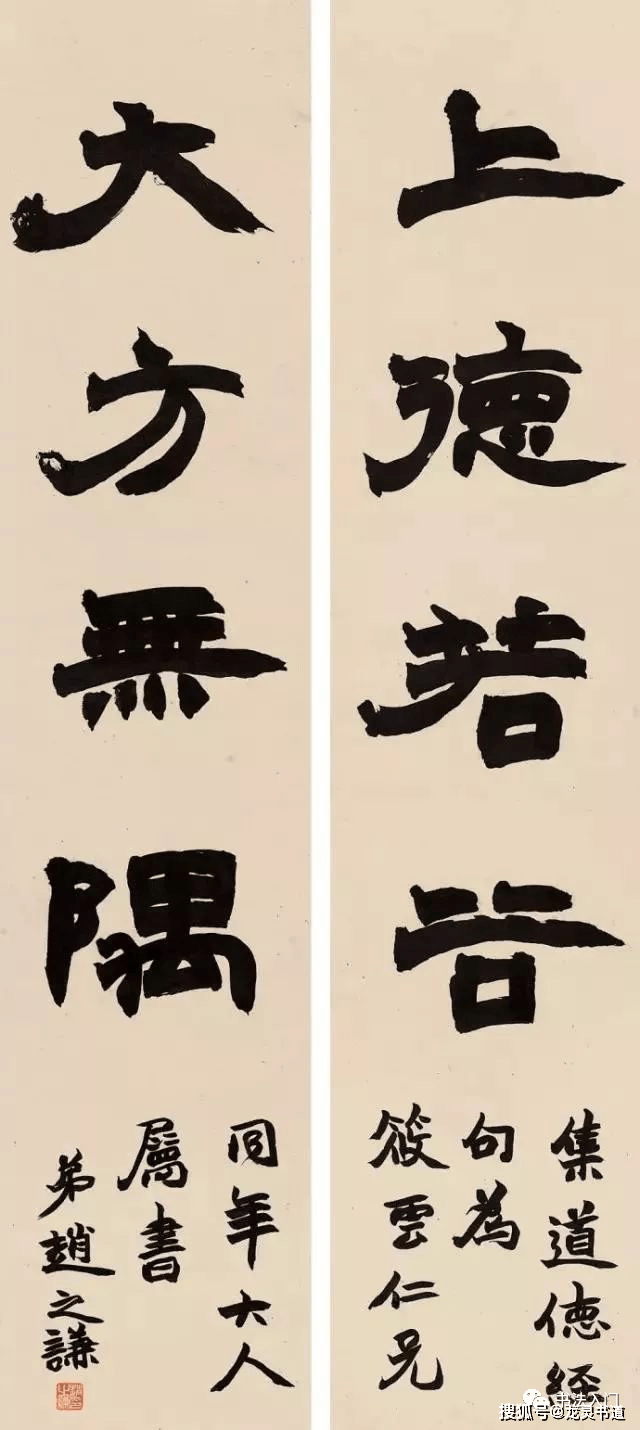 上德若谷
集道德經
句為
筱雲仁兄
大方無隅
同年大人
屬書
弟趙之謙
书法入门
搜狐号@龙灵书道